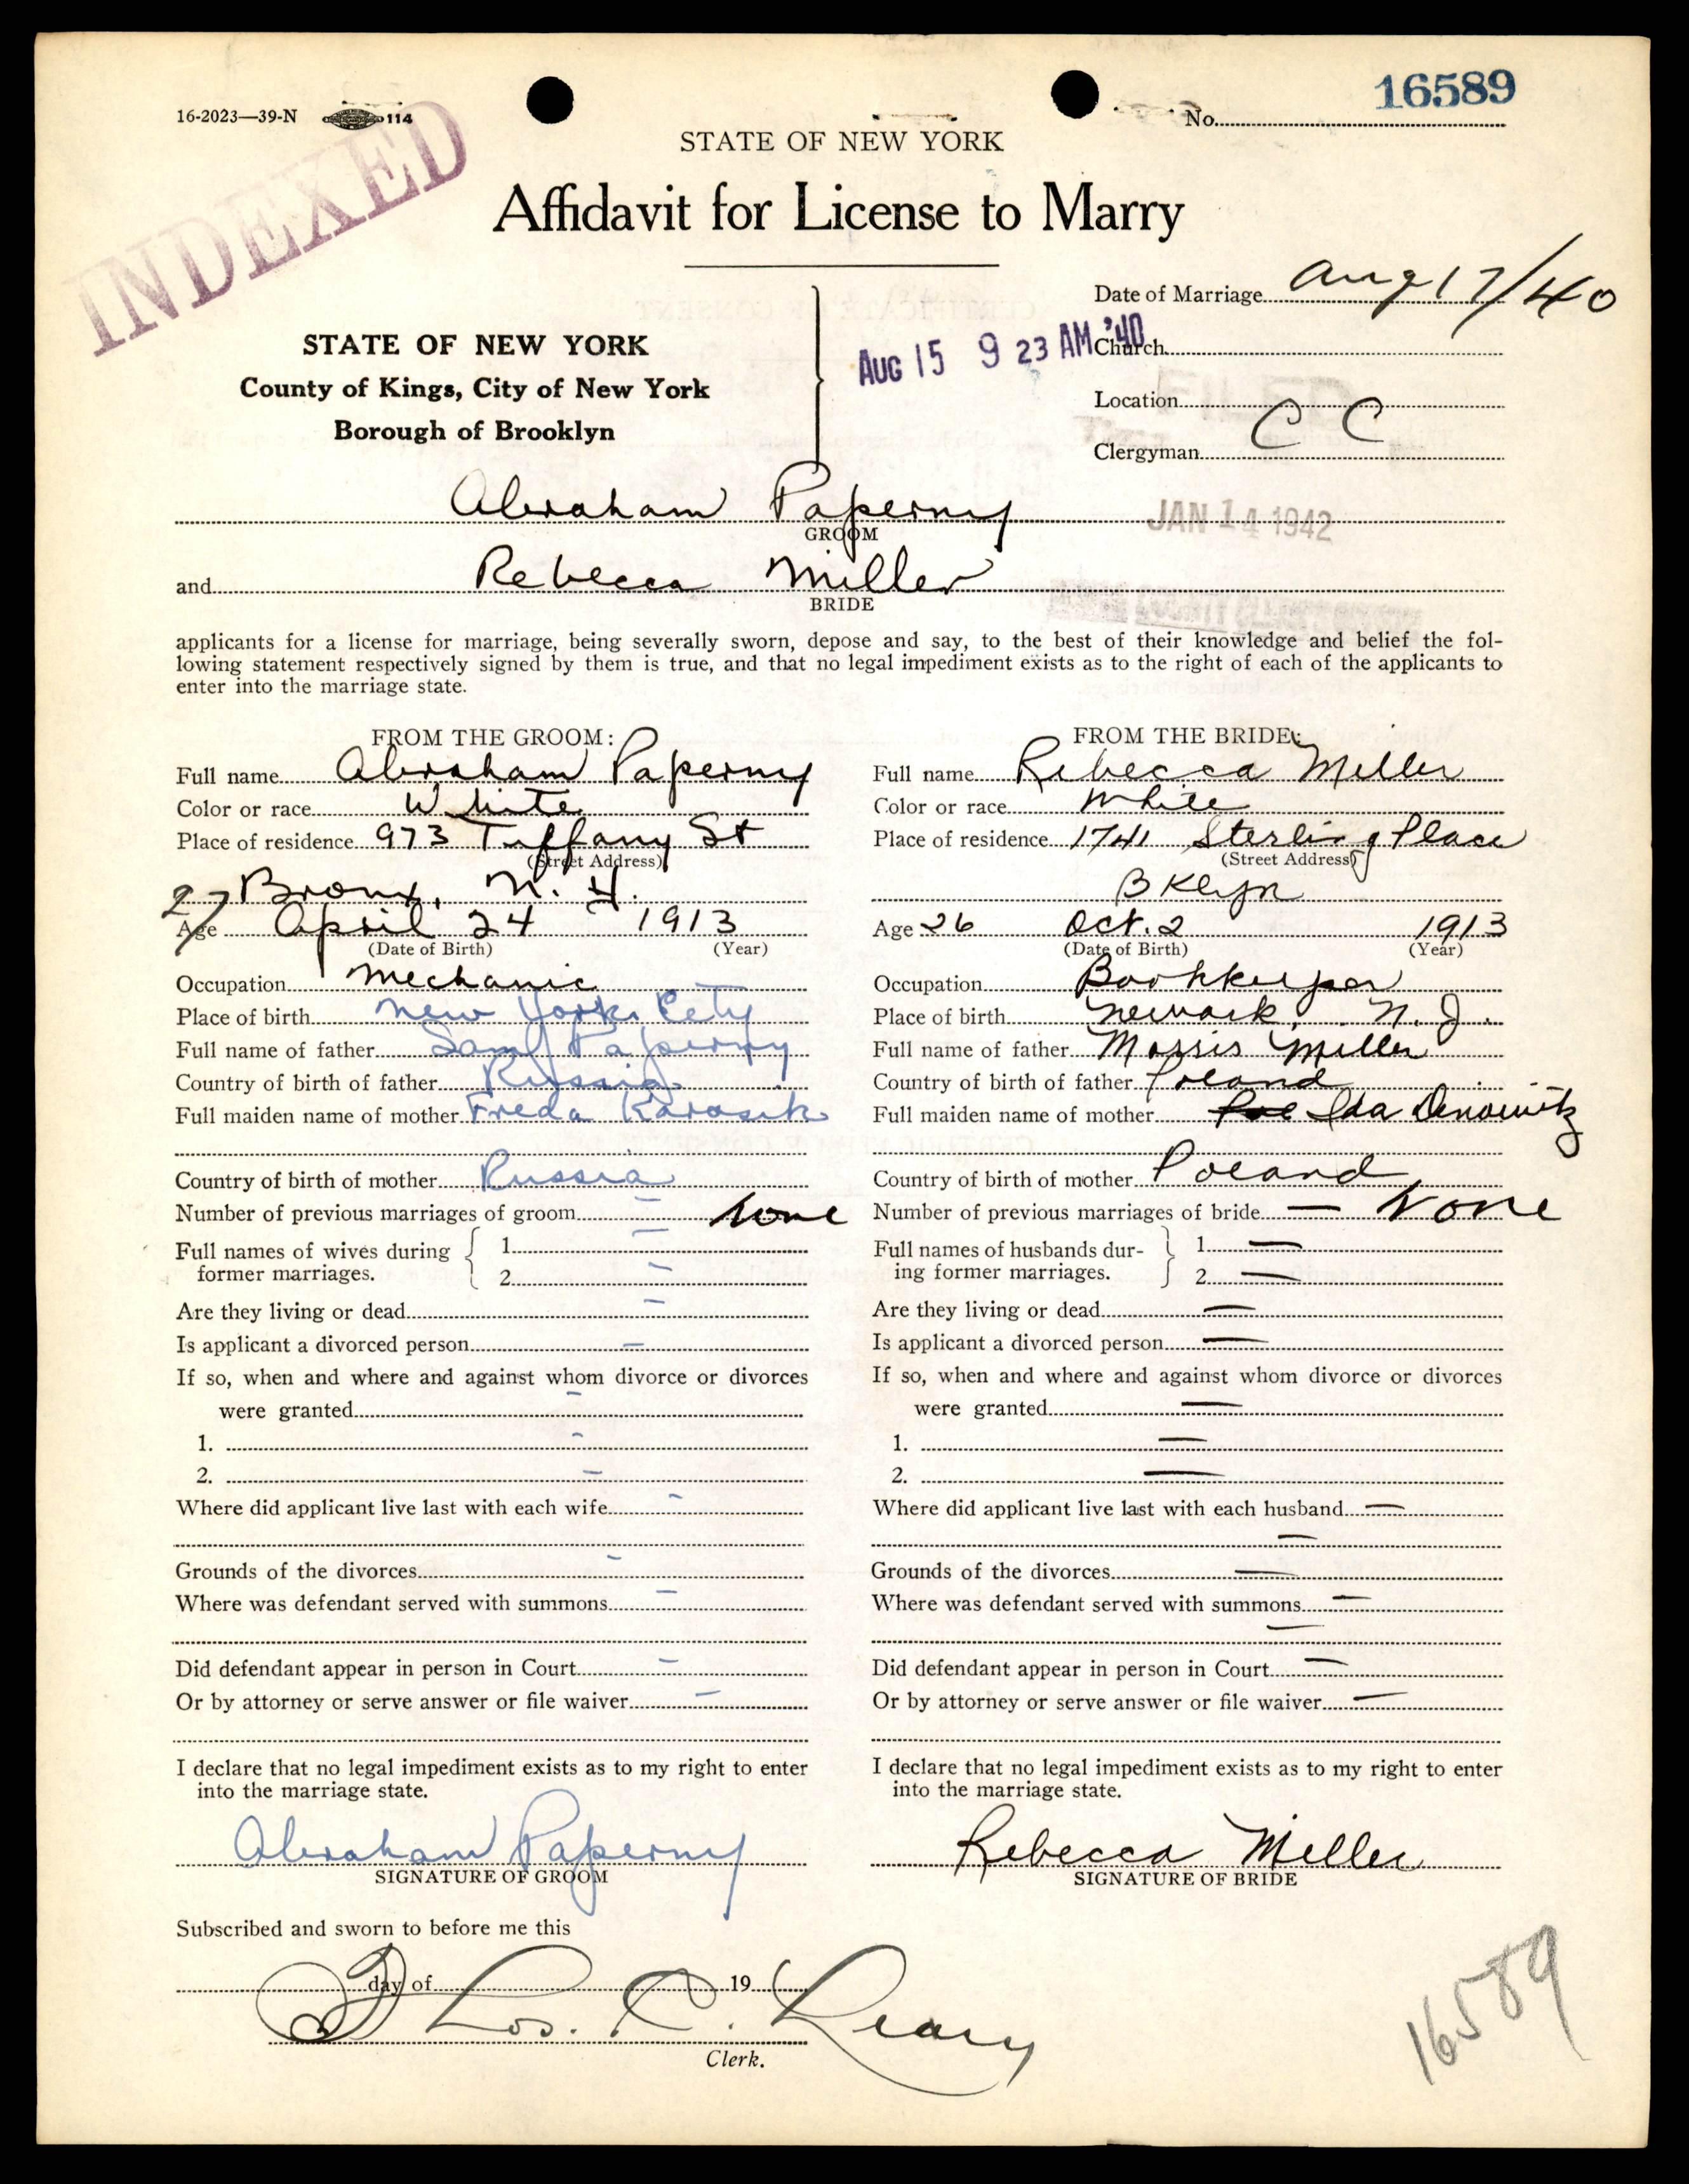 16589
16-2023—39-N 114
No.
INDEXED
STATE OF NEW YORK
Affidavit for License to Marry
Date of Marriage Aug 17/40
STATE OF NEW YORK
County of Kings, City of New York
Borough of Brooklyn
AUG 15 9 23 AM '40
Church
Location
C C
Clergyman
Abraham Paperny
GROOM
JAN 14 1942
and Rebecca Miller
BRIDE
applicants for a license for marriage, being severally sworn, depose and say, to the best of their knowledge and belief the fol-
lowing statement respectively signed by them is true, and that no legal impediment exists as to the right of each of the applicants to
enter into the marriage state.
FROM THE GROOM:
Full name Abraham Paperny
Color or race White
Place of residence 973 Tiffany St
(Street Address)
Bronx, N. Y.
27
Age April 24 1913
(Date of Birth) (Year)
Occupation Mechanic
Place of birth New York City
Full name of father Sam Paperny
Country of birth of father Russia
Full maiden name of mother Freda Karasik
Country of birth of mother Russia
Number of previous marriages of groom — None
Full names of wives during former marriages.
1. —
2. —
Are they living or dead —
Is applicant a divorced person —
If so, when and where and against whom divorce or divorces
were granted —
1. —
2. —
Where did applicant live last with each wife —
Grounds of the divorces —
Where was defendant served with summons —
Did defendant appear in person in Court —
Or by attorney or serve answer or file waiver —
I declare that no legal impediment exists as to my right to enter
into the marriage state.
Abraham Paperny
SIGNATURE OF GROOM
FROM THE BRIDE:
Full name Rebecca Miller
Color or race White
Place of residence 1741 Sterling Place
(Street Address)
Bklyn
Age 26 Oct. 2 1913
(Date of Birth) (Year)
Occupation Bookkeeper
Place of birth Newark, N. J.
Full name of father Morris Miller
Country of birth of father Poland
Full maiden name of mother Ida
Country of birth of mother Poland
Number of previous marriages of bride — None
Full names of husbands dur-
ing former marriages.
1. —
2. —
Are they living or dead —
Is applicant a divorced person —
If so, when and where and against whom divorce or divorces
were granted —
1. —
2. —
Where did applicant live last with each husband —
—
Grounds of the divorces —
Where was defendant served with summons —
—
Did defendant appear in person in Court —
Or by attorney or serve answer or file waiver —
I declare that no legal impediment exists as to my right to enter
into the marriage state.
Rebecca Miller
SIGNATURE OF BRIDE
Subscribed and sworn to before me this
day of 19
Thos. C. Leary
Clerk.
16589